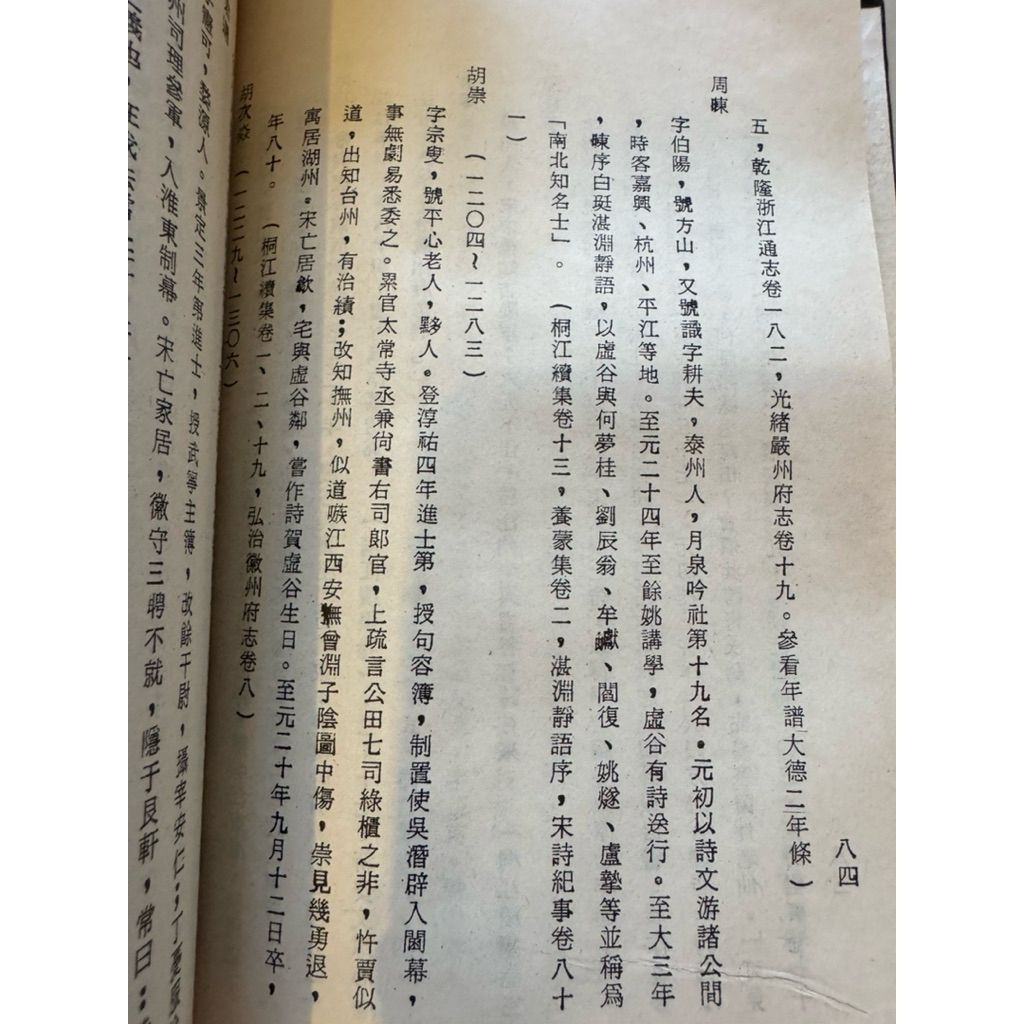 八四
五，乾隆浙江通志卷一八二，光緒嚴州府志卷十九。參看年譜大德二年條）
周暕
字伯陽，號方山，又號識字耕夫，泰州人，月泉吟社第十九名。元初以詩文游諸公間
，時客嘉興、杭州、平江等地。至元二十四年至餘姚講學，虛谷有詩送行。至大三年
，暕序白珽湛淵靜語，以虛谷與何夢桂、劉辰翁、牟巘、閻復、姚燧、盧摯等並稱爲
「南北知名士」。（桐江續集卷十三，養蒙集卷二，湛淵靜語序，宋詩紀事卷八十
一）
胡崇（一二〇四～一二八三）
字宗叟，號平心老人，黟人。登淳祐四年進士第，授句容簿，制置使吳潛辟入閫幕，
事無劇易悉委之。累官太常寺丞兼尙書右司郎官，上疏言公田七司綠櫃之非，忤賈似
道，出知台州，有治績；改知撫州，似道嗾江西安撫曾淵子陰圖中傷，崇見幾勇退，
寓居湖州。宋亡居歙，宅與虛谷鄰，嘗作詩賀虛谷生日。至元二十年九月十二日卒，
年八十。（桐江續集卷一、二、十九，弘治徽州府志卷八）
胡次焱（一二二九～一三〇六）
，婺源人。景定三年第進士，授武寧主簿，改餘干尉，攝宰安仁；丁
州司理參軍，入淮東制幕。宋亡家居，徽守三聘不就，隱于艮軒，常日：